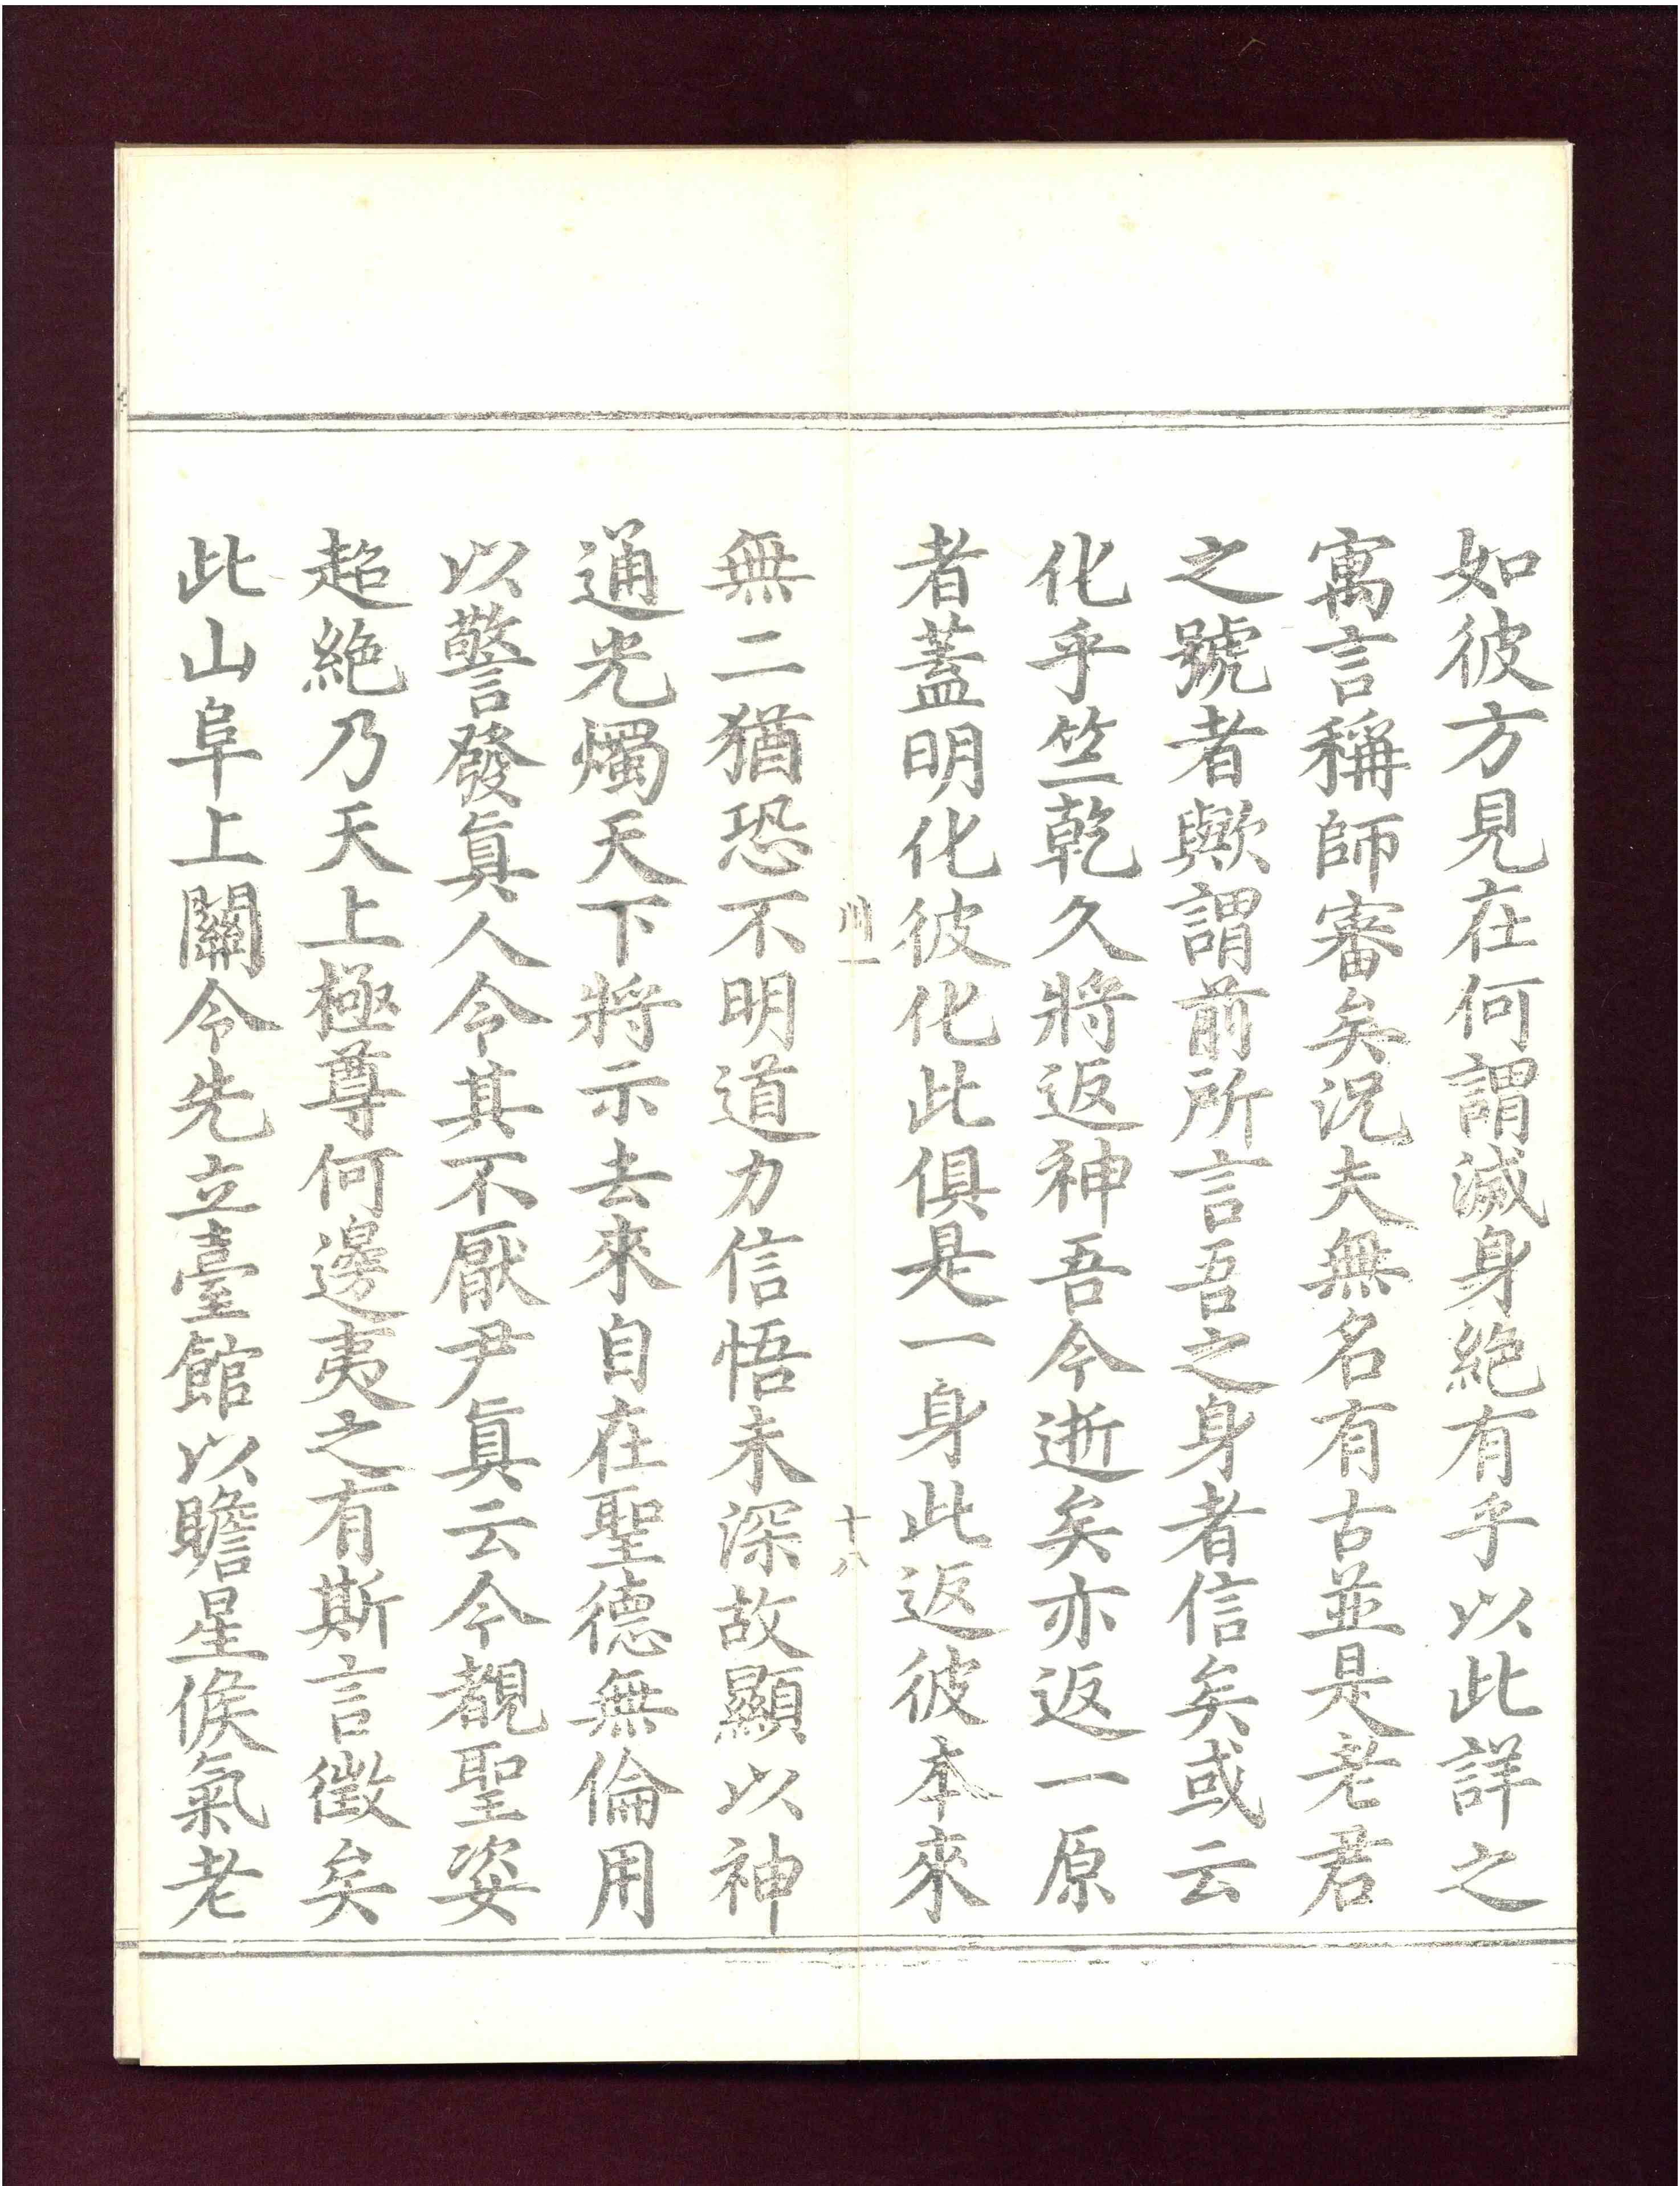 如彼方見在何謂滅身絶有乎以此詳之
寓言稱師審矣况夫無名有古並是老君
之號者歟謂前所言吾之身者信矣或云
化乎竺乾久將返神吾今逝矣亦返一原
者蓋明化彼化此俱是一身此返彼本來
川一
十八
無二猶恐不明道力信悟未深故顯以神
通光燭天下將示去來自在聖德無倫用
以警發真人令其不厭尹真云今覩聖姿
超絶乃天上極尊何邊夷之有斯言徵矣
此山阜上關令先立臺館以瞻星候氣老